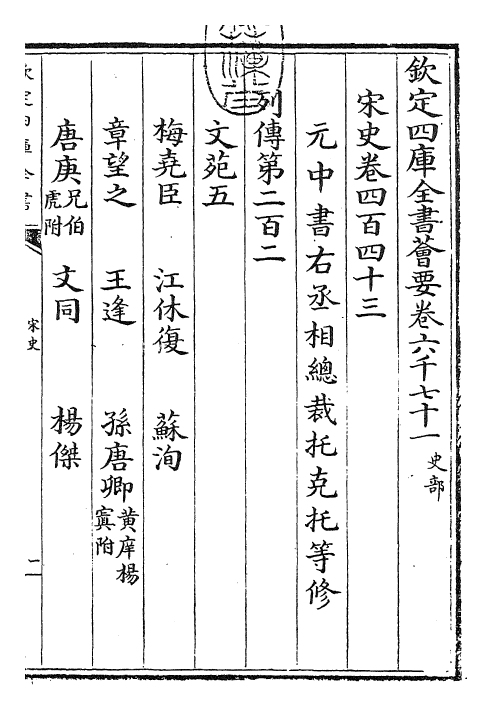 欽定四庫全書薈要卷六千七十一 史部
宋史卷四百四十三
元中書右丞相總裁托克托等修
列傳第二百二
文苑五
梅堯臣 江休復 蘇洵
章望之 王逢 孫唐卿 黄庠楊寘附
唐庚 兄伯虎附 文同 楊傑
宋史